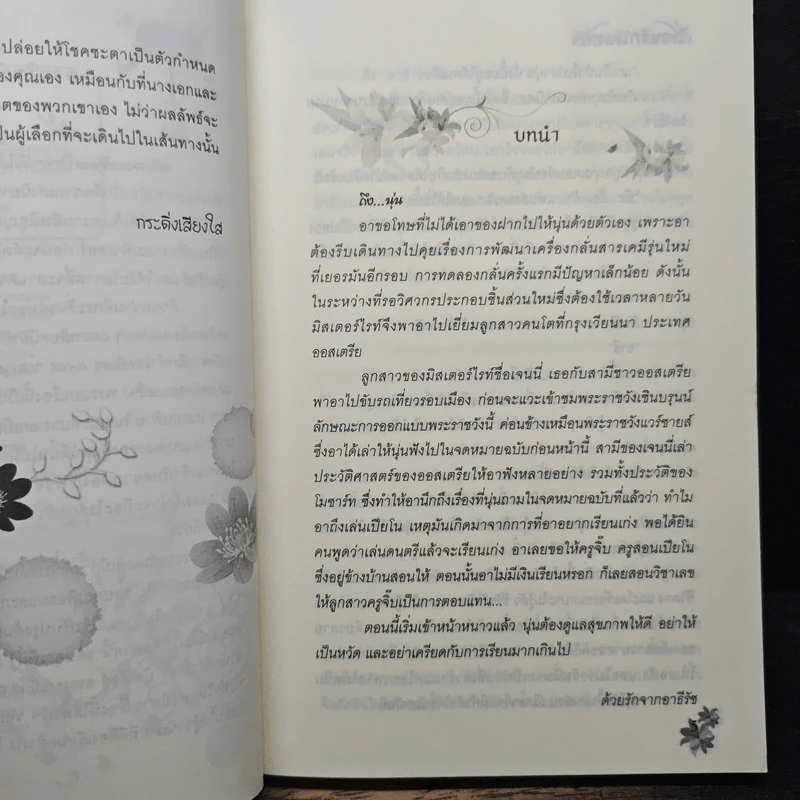 ปล่อยให้โชคชะตาเป็นตัวกำหนด
องคุณเอง เหมือนกับที่นางเอกและ
ตของพวกเขาเอง ไม่ว่าผลลัพธ์จะ
ป็นผู้เลือกที่จะเดินไปในเส้นทางนั้น
กระดิ่งเสียงใส
บทนำ
ถึง...นุ่น
อาขอโทษที่ไม่ได้เอาของฝากไปให้นุ่นด้วยตัวเอง เพราะอา
ต้องรีบเดินทางไปคุยเรื่องการพัฒนาเครื่องกลั่นสารเคมีรุ่นใหม่
ที่เยอรมันอีกรอบ การทดลองกลั่นครั้งแรกมีปัญหาเล็กน้อย ดังนั้น
ในระหว่างที่รอวิศวกรประกอบชิ้นส่วนใหม่ซึ่งต้องใช้เวลาหลายวัน
มิสเตอร์ไรท์จึงพาอาไปเยี่ยมลูกสาวคนโตที่กรุงเวียนนา ประเทศ
ออสเตรีย
ลูกสาวของมิสเตอร์ไรท์ชื่อเจนนี่ เธอกับสามีชาวออสเตรีย
พาอาไปขับรถเที่ยวรอบเมือง ก่อนจะแวะเข้าชมพระราชวังเชินบรุนน์
ลักษณะการออกแบบพระราชวังนี้ ค่อนข้างเหมือนพระราชวังแวร์ซายส์
ซึ่งอาได้เล่าให้นุ่นฟังไปในจดหมายฉบับก่อนหน้านี้ สามีของเจนนี่เล่า
ประวัติศาสตร์ของออสเตรียให้อาฟังหลายอย่าง รวมทั้งประวัติของ
โมซาร์ท ซึ่งทำให้อานึกถึงเรื่องที่นุ่นถามในจดหมายฉบับที่แล้วว่า ทำไม
อาถึงเล่นเปียโน เหตุมันเกิดมาจากการที่อาอยากเรียนเก่ง พอได้ยิน
คนพูดว่าเล่นดนตรีแล้วจะเรียนเก่ง อาเลยขอให้ครูจิ๊บ ครูสอนเปียโน
ซึ่งอยู่ข้างบ้านสอนให้ ตอนนั้นอาไม่มีเงินเรียนหรอก ก็เลยสอนวิชาเลข
ให้ลูกสาวครูจิ๊บเป็นการตอบแทน...
ตอนนี้เริ่มเข้าหน้าหนาวแล้ว นุ่นต้องดูแลสุขภาพให้ดี อย่าให้
เป็นหวัด และอย่าเครียดกับการเรียนมากเกินไป
ด้วยรักจากอาธีรัช
5